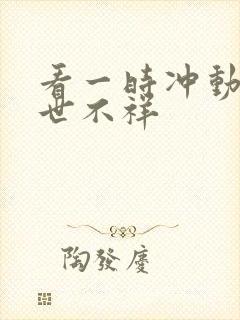 看一時冲動
世不祥
陶發慶